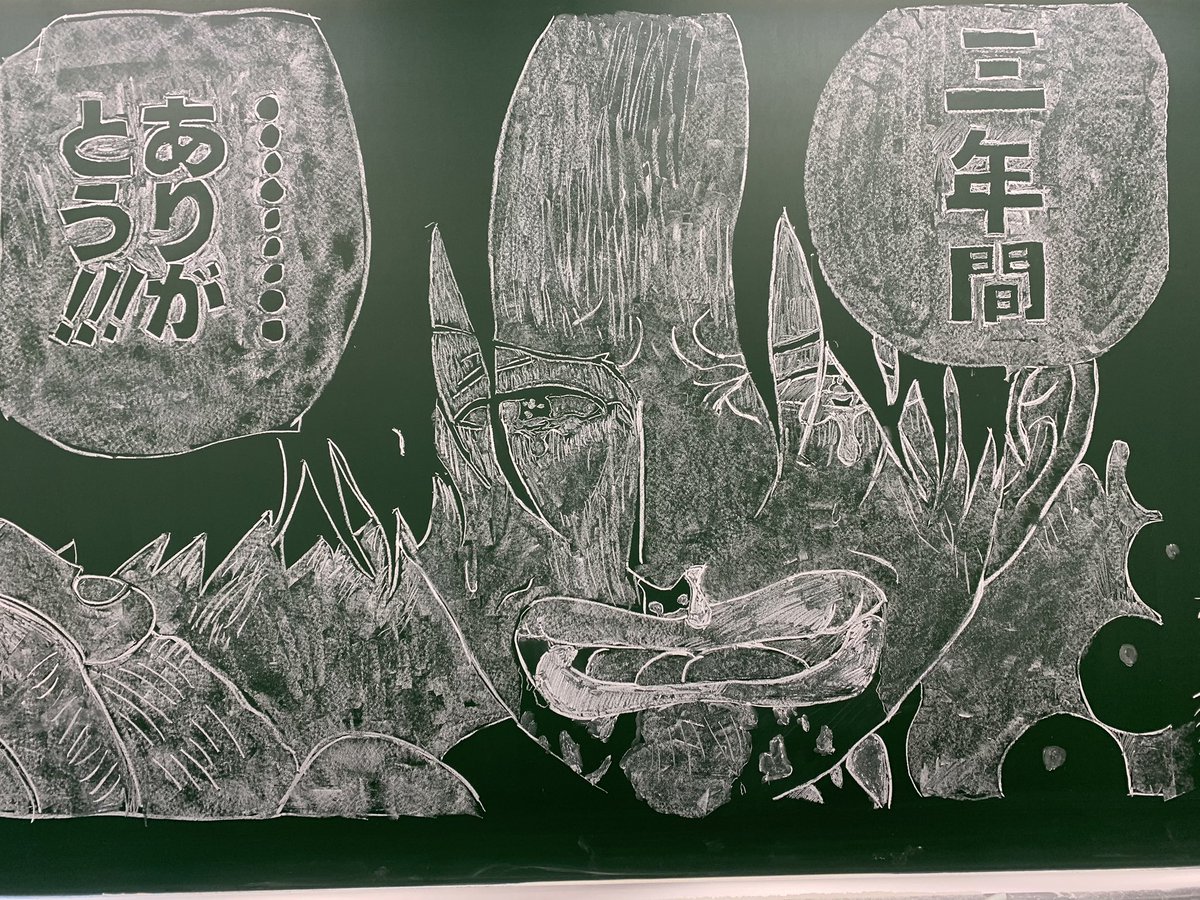 三年間
………
ありが
とう!!!